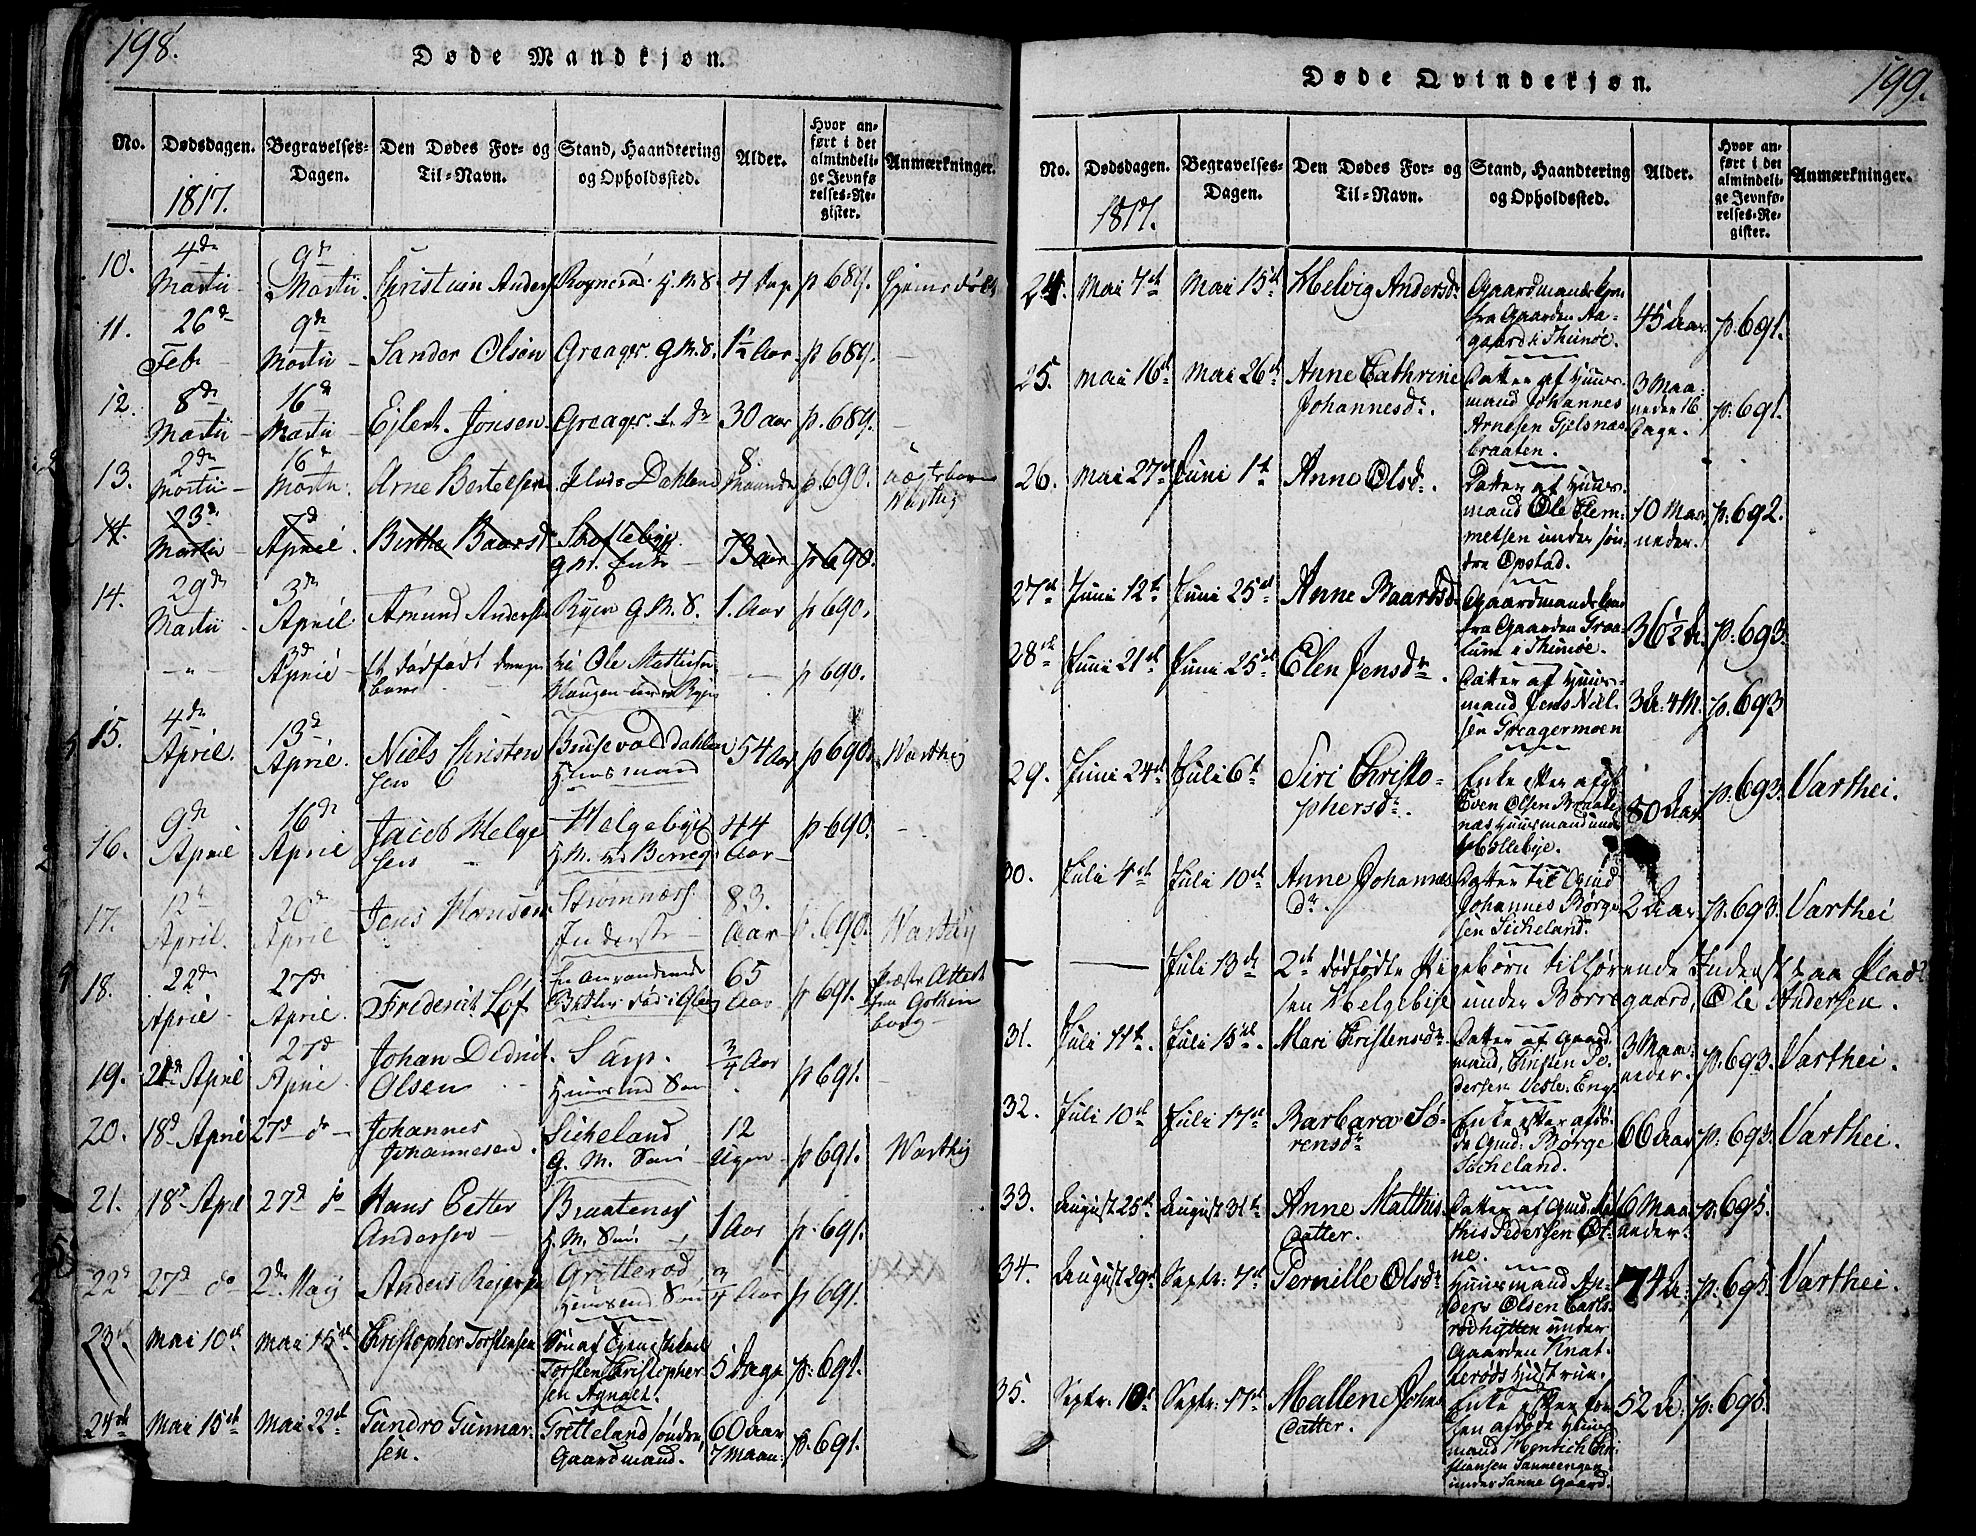 198.
Døde Mandkjøn.
No.
Dødsdagen.
1817.
Begravelses-
Dagen.
Den Dødes For- og
Til-Navn.
Stand, Haandtering
og Opholdssted.
Alder.
Hvor an-
ført i det
almindeli-
ge Jevnfø-
relses-Re-
gister.
Anmærkninger.
10. 4de Martii 9de Martii Christian Anders Rognerød 4 dage p 689. hjemmedøbt
11. 26de Feb. 9de Martii Sander Olsen Greager G.M.S. 1½ Aar p 689.
12. 8de Martii 16de Martii Ejlert Jonsen Greager 30 aar p. 689.
13. 2de Martii 16de Martii Arne Bertelsen Dahlend 8 Maaneder p. 690. Warthej
14. 23de Martii 7de April Berthe Baarsd 73 aar p 690.
14. 29de Martii 3de April Amund Andersen Ryen G.M.S. 1. Aar p 690.
3de April Et dødfødt drenge
barn
Ole Mathisen
Haugen under Ryen
p 690.
15. 4de April. 13de April. Niels Christen
sen
dahlen
Huusmand
54 Aar p 690. Warthej
16. 9de April 16de April Jacob Helge
sen
Helgebye
H.M. ved Borreg
44
Aar
p 690.
17. 12te April. 20de April Jens Hansen Strømnæss
Inderste
83.
Aar
p. 690. Warthej
18. 22de April 27de April. Frederik Løf
65
Aar
p 691. fra Gothen
borg
19. 21de April 27de April Johan Didrik
Olsen
Sarp.
Huusmd Søn
¾ Aar p 691.
20. 18de April 27de do Johannes
Johannesen.
Sicheland
G. M. Søn
12
Uger
p 691. Warthej
21. 18de April 27de do Hans Petter
Andersen
Braatenes
H. M. Søn
1 Aar p. 691.
22de 27de do 2den Maij Anders Rejers Grøtterød
Huusmd Søn
¾ Aar p 691.
23de Mai 10de Mai 15de Christopher Torstensen Søn af
Torsten Christopher-
sen Agnalt.
5 Dage p. 691.
24de Mai 15de Mai 22de Gundro Gunnar-
sen.
Grætteland søndre,
Gaardmand.
60 Aar
7 Maan:
p. 691.
199.
Døde Qvindekjøn.
No.
Dødsdagen.
1817.
Begravelses-
Dagen.
Den Dødes For- og
Til-Navn.
Stand, Haandtering
og Opholdssted.
Alder.
Hvor an-
ført i det
almindeli-
ge Jevnfø-
relses-Re-
gister.
Anmærkninger.
24. Mai 7de Mai 15de Helvig Andersdr Gaardmandskone
fra Gaarden Aa-
gaard i Thunøe.
45 Aar p. 691.
25. Mai 16de Mai 26de Anne Cathrine
Johannesdr.
Datter af Huus-
mand Johannes
Arnesen Gjelsnes-
braaten.
3 Maa-
neder 16
Dage.
p. 691.
26. Mai 27de Juni 1te Anne Olsdr. Datter af Huus-
mand Ole Clem-
metsen under søn-
dre Opstad.
10 Maa-
neder.
p. 692.
27de Juni 12te Juni 25de Anne Baardsdr Gaardmandskone
fra Gaarden Graa-
lum i Thunøe.
36½ A. p. 693.
28de Juni 21de Juni 25de Elen Jensdr. Datter af Huus-
mand Jens Niel-
sen Greagermoen
3 A. 4 M. p. 693
29. Juni 24de Juli 6te Siri Christo-
phersdr.
Enke efter afdø
Even Olsen Braate-
næs Huusmand under
Hollebye.
80 Aar. p. 693. Varthei.
30. Juli 4de Juli 10de Anne Johannes
Dr.
Datter til Gmd
Johannes Børge
sen Sicheland.
2 Aar. p. 693. Varthei
Juli 13de 2de dødfødte Pigebørn tilhørende Inderst
sen Helgebye under Borregaard, Ole Andersen.
31. Juli 11te. Juli 15de. Mari Christensdr Datter af Gaard
mand, Christen Pe-
dersen Vestre Eng.
3 Maa-
neder.
p. 693. Varthei.
32. Juli 10de Juli 17de Barbara Sø-
rensdr
Enke efter afdø-
de Gmd: Børge
Sicheland.
66 Aar p. 693. Varthei.
33. August 25de August 31te Anne Matthis
Datter.
Datter af Gmd. Mat
this Pedersen Ot-
ne.
6 Maa-
neder.
p. 695.
34. August 29de Septr. 7de Pernille Olsdr Huusmand An-
ders Olsen Carls-
rødhytten under
Gaarden Knat-
terøds Hustrue.
74 A. p. 695. Varthei.
35. Septr. 10de Septr. 17de Mallene Johns
Datter.
Enke efter
afdøde Huus
mand Henrich Chri
stiansen Sanneengen
under Sanne Gaard.
52 A. p. 695.